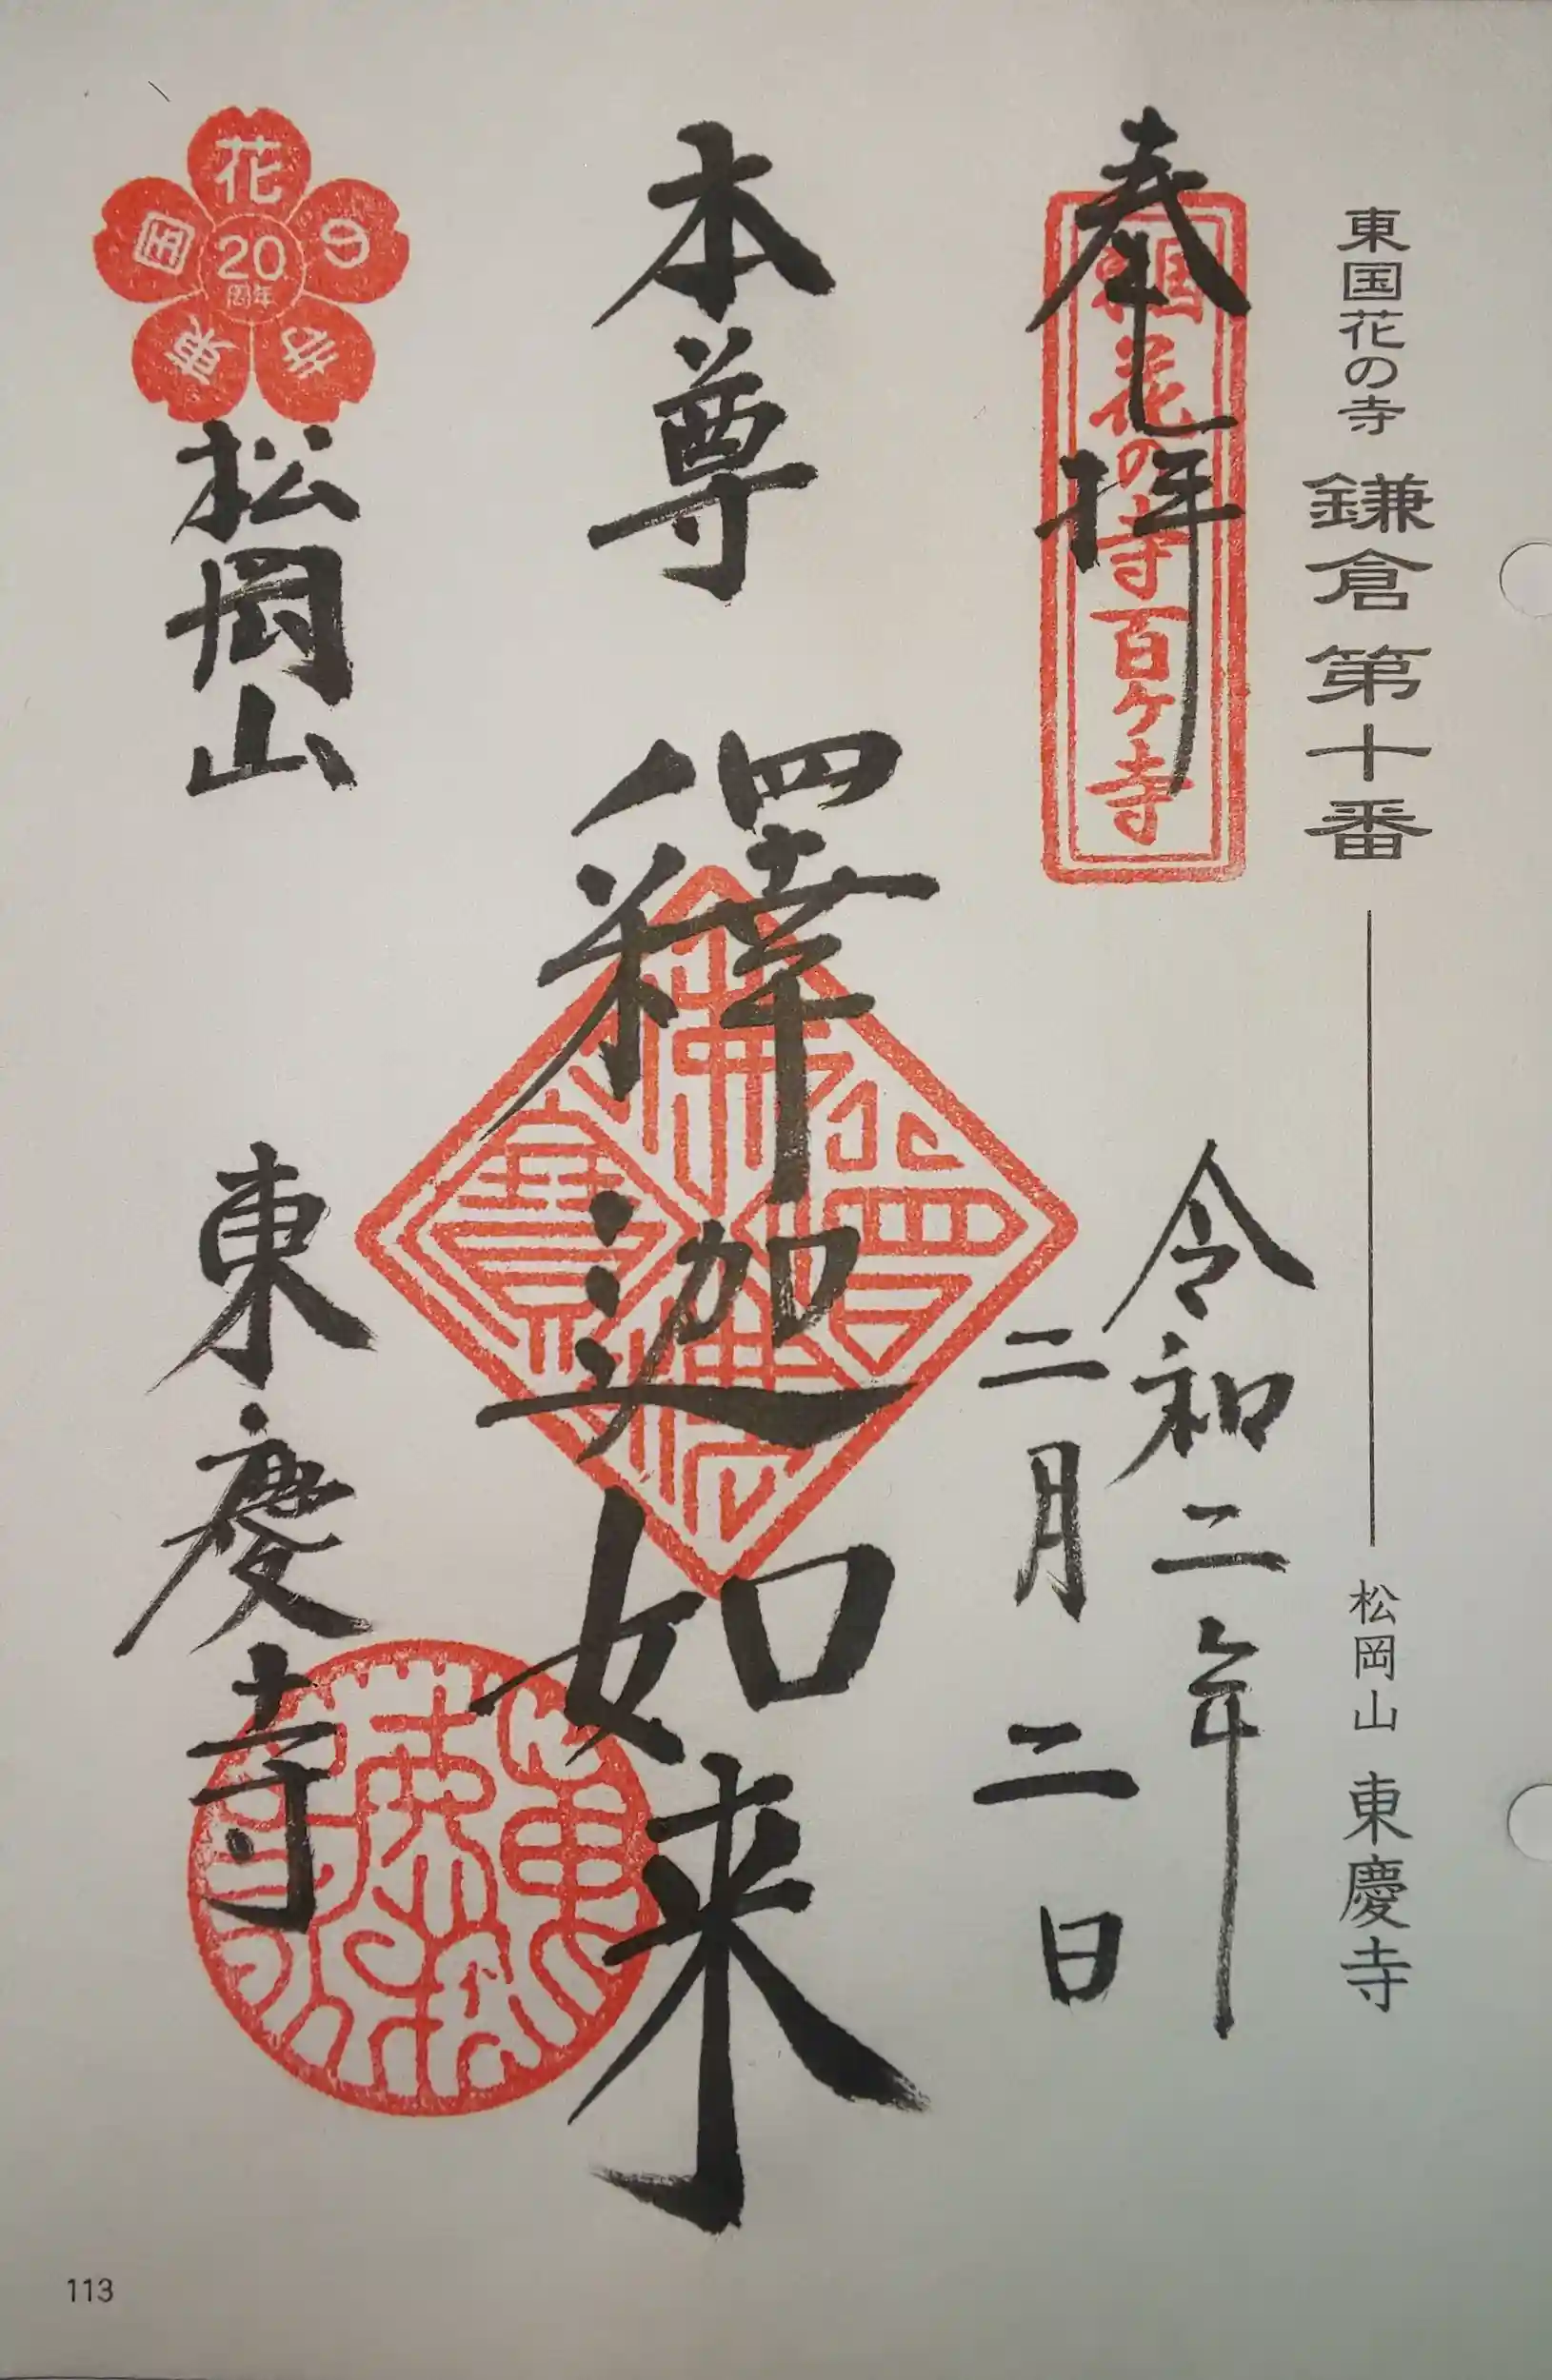 東国花の寺 鎌倉第十番 松岡山 東慶寺
奉拝
東国花の寺百ヶ寺
令和二年
二月二日
本尊 釋迦如来
佛法僧寶
花の寺東国
20
周年
松岡山 東慶寺
113